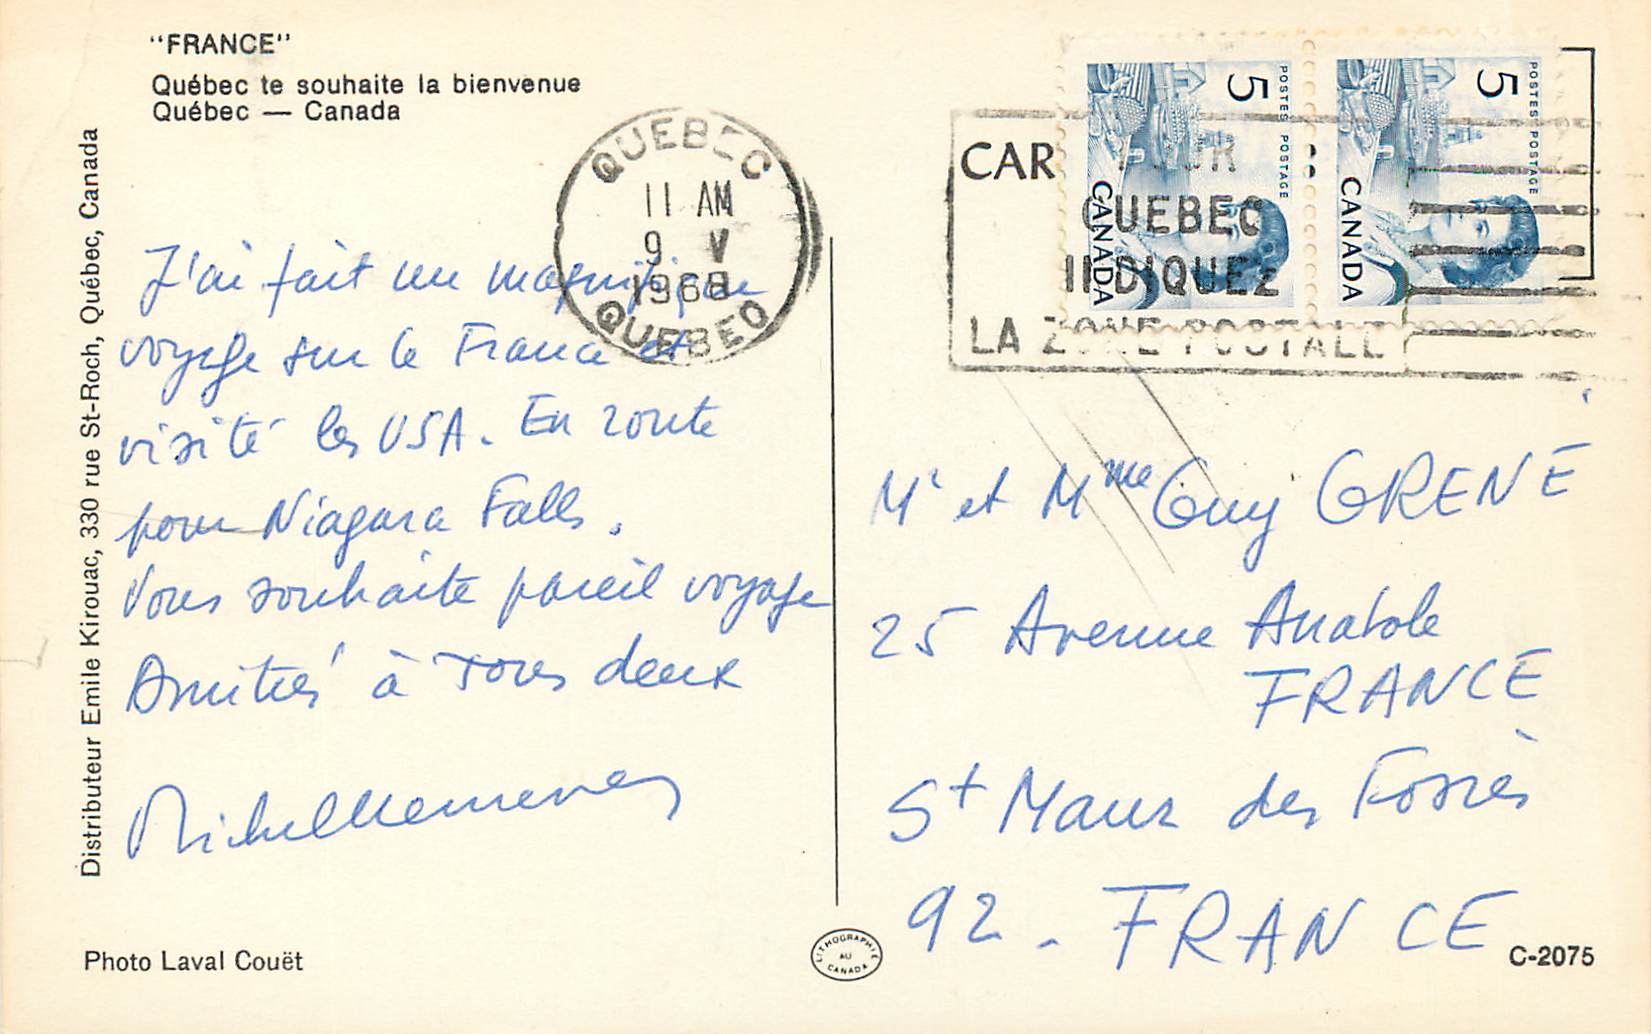 “FRANCE”
Québec te souhaite la bienvenue
Québec — Canada
Distributeur Emile Kirouac, 330 rue St-Roch, Québec, Québec, Canada
QUEBEC
11 AM
9 V
1968
QUEBEC
J'ai fait un magnifique
voyage sur le France et
visité les USA. En route
pour Niagara Falls.
Vous souhaite pareil voyage
Amitiés à tous deux
Photo Laval Couët
CAR
POUR
QUEBEC
INDIQUEZ
LA ZONE POSTALE
5
POSTES POSTAGE
CANADA
5
POSTES POSTAGE
CANADA
Mr et Mme Guy GRENÉ
25 Avenue Anatole
FRANCE
St Maur des Fossés
92 - FRANCE
LITHOGRAPHIÉ
AU
CANADA
C-2075